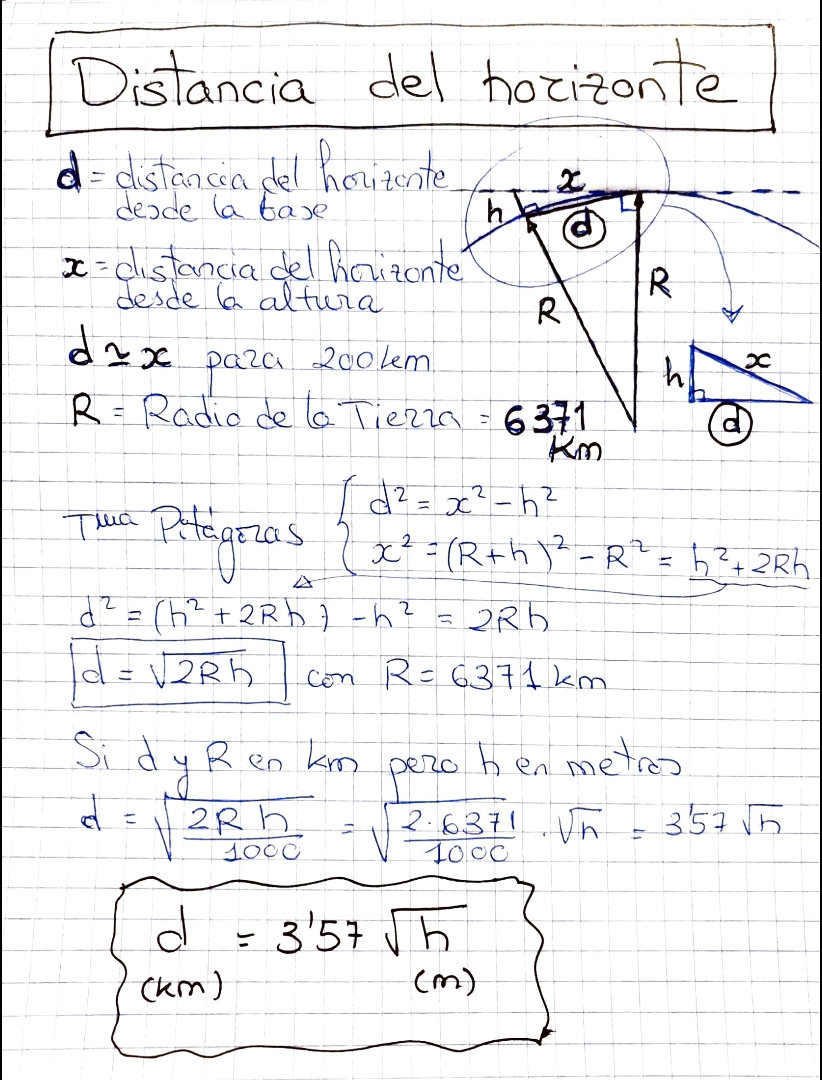 Distancia del horizonte
d = distancia del horizonte
desde la base
x = distancia del horizonte
desde la altura
d ≃ x para 200 km
R = Radio de la Tierra = 6371
Km
x
h
d
R
R
h
x
d
Tma Pitágoras { d² = x² - h²
x² = (R+h)² - R² = h² + 2Rh
d² = (h² + 2Rh) - h² = 2Rh
d = √2Rh con R = 6371 km
Si d y R en km pero h en metros
d = √(2Rh/1000) = √(2·6371/1000) · √h = 3'57 √h
d = 3'57 √h
(km) (m)